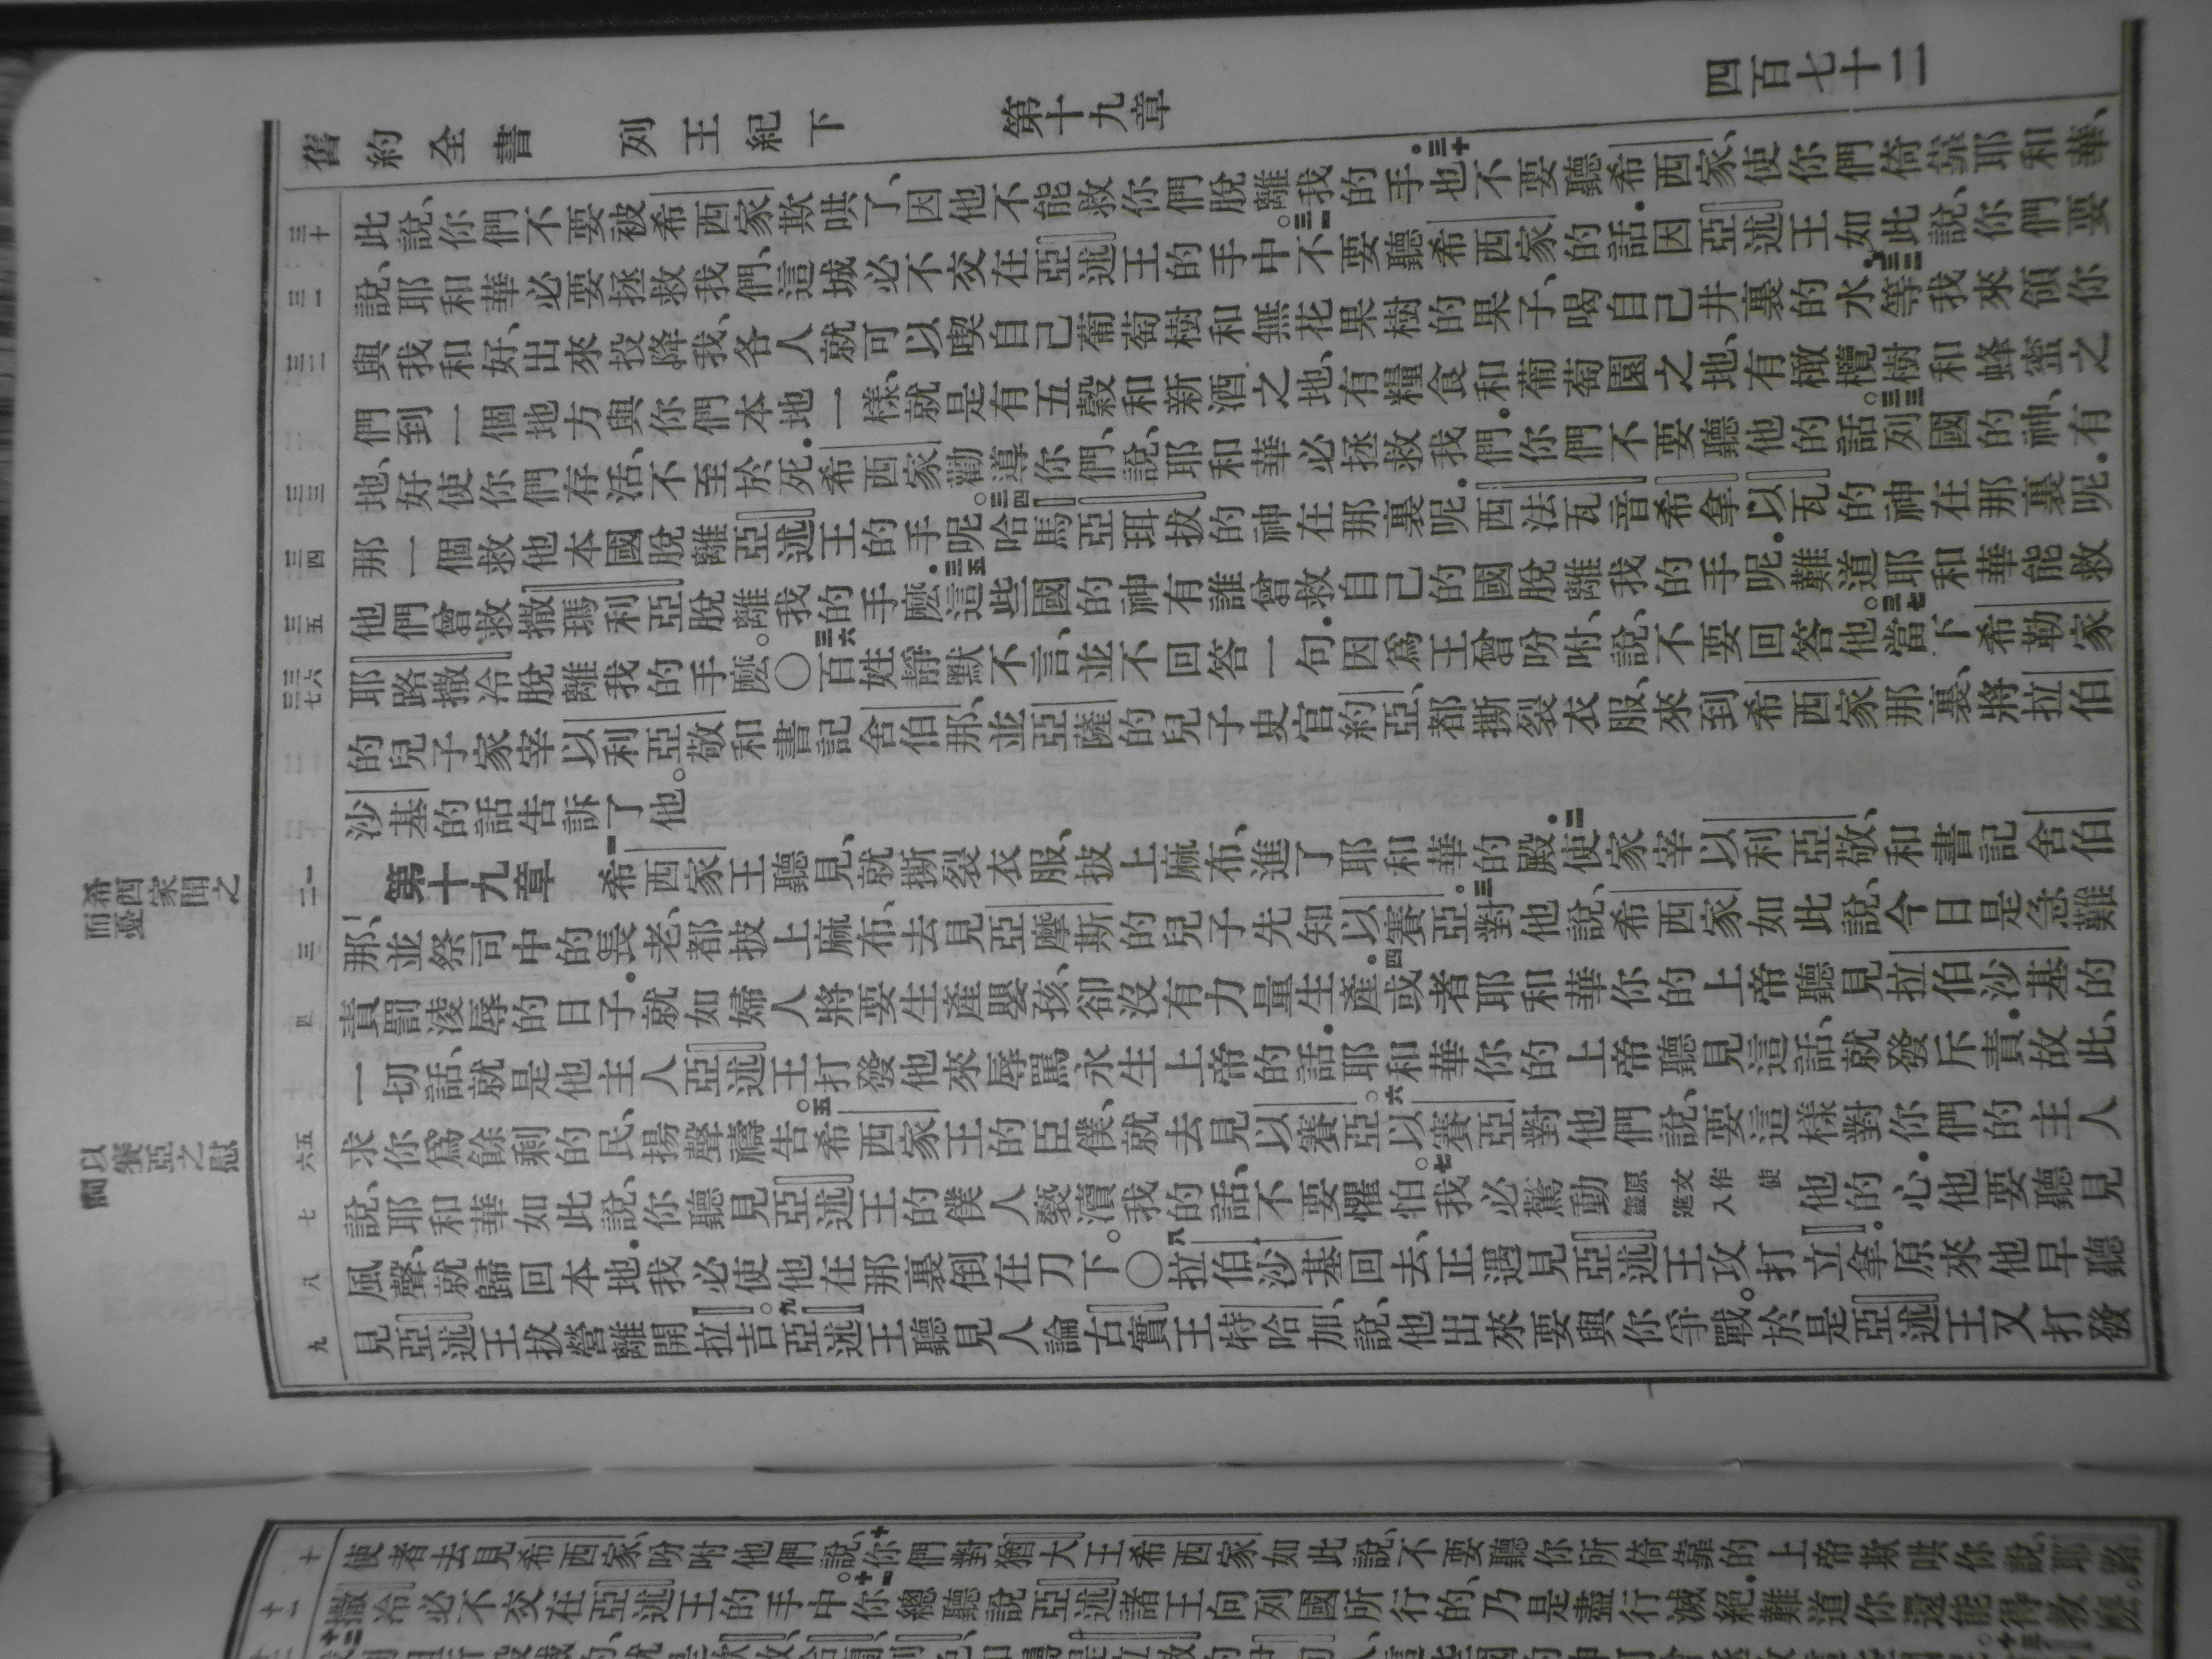 舊約全書 列王紀下 第十九章 四百七十二
三十 此說、你們不要被希西家欺哄了、因他不能救你們脫離我的手。三十也不要聽希西家、使你們倚靠耶和華、
三一 說、耶和華必要拯救我們、這城必不交在亞述王的手中。三一不要聽希西家的話．因亞述王如此說、你們要
三二 與我和好、出來投降我、各人就可以喫自己葡萄樹和無花果樹的果子、喝自己井裏的水．三二等我來領你
們到一個地方與你們本地一樣、就是有五穀和新酒之地、有糧食和葡萄園之地、有橄欖樹和蜂蜜之
三三 地、好使你們存活、不至於死．希西家勸導你們、說、耶和華必拯救我們．你們不要聽他的話。三三列國的神、有
三四 那一個救他本國脫離亞述王的手呢。三四哈馬亞珥拔的神在那裏呢．西法瓦音希拿以瓦的神在那裏呢．
三五 他們曾救撒瑪利亞脫離我的手麽．三五這些國的神有誰曾救自己的國脫離我的手呢．難道耶和華能救
三六 三七 耶路撒冷脫離我的手麽。〇三六百姓靜默不言、並不回答一句．因爲王曾吩咐、說、不要回答他。三七當下希勒家
的兒子家宰以利亞敬、和書記舍伯那、並亞薩的兒子史官約亞、都撕裂衣服、來到希西家那裏、將拉伯
沙基的話告訴了他。
一 二 第十九章 一希西家王聽見、就撕裂衣服、披上麻布、進了耶和華的殿．二使家宰以利亞敬、和書記舍伯
三 那、並祭司中的長老、都披上麻布、去見亞摩斯的兒子先知以賽亞．三對他說、希西家如此說、今日是急難
四 責罰淩辱的日子．就如婦人將要生產嬰孩、卻沒有力量生產．四或者耶和華你的上帝聽見拉伯沙基的
一切話、就是他主人亞述王打發他來辱罵永生上帝的話．耶和華你的上帝聽見這話、就發斥責．故此、
五 六 求你爲餘剩的民、揚聲禱告。五希西家王的臣僕、就去見以賽亞。六以賽亞對他們說、要這樣對你們的主人
七 說、耶和華如此說、你聽見亞述王的僕人褻瀆我的話、不要懼怕。七我必驚動原文作使靈進入他的心．他要聽見
八 風聲、就歸回本地．我必使他在那裏倒在刀下。〇八拉伯沙基回去、正遇見亞述王攻打立拿．原來他早聽
九 見亞述王拔營離開拉吉。九亞述王聽見人論古實王特哈加、說、他出來要與你爭戰。於是亞述王又打發
希西家聞之而憂
以賽亞之慰詞
十 使者去見希西家、吩咐他們說、十你們對猶大王希西家如此說、不要聽你所倚靠的上帝欺哄你說、耶路
十一 撒冷必不交在亞述王的手中。十一你總聽說亞述諸王向列國所行的、乃是盡行滅絕．難道你還能得救麽。